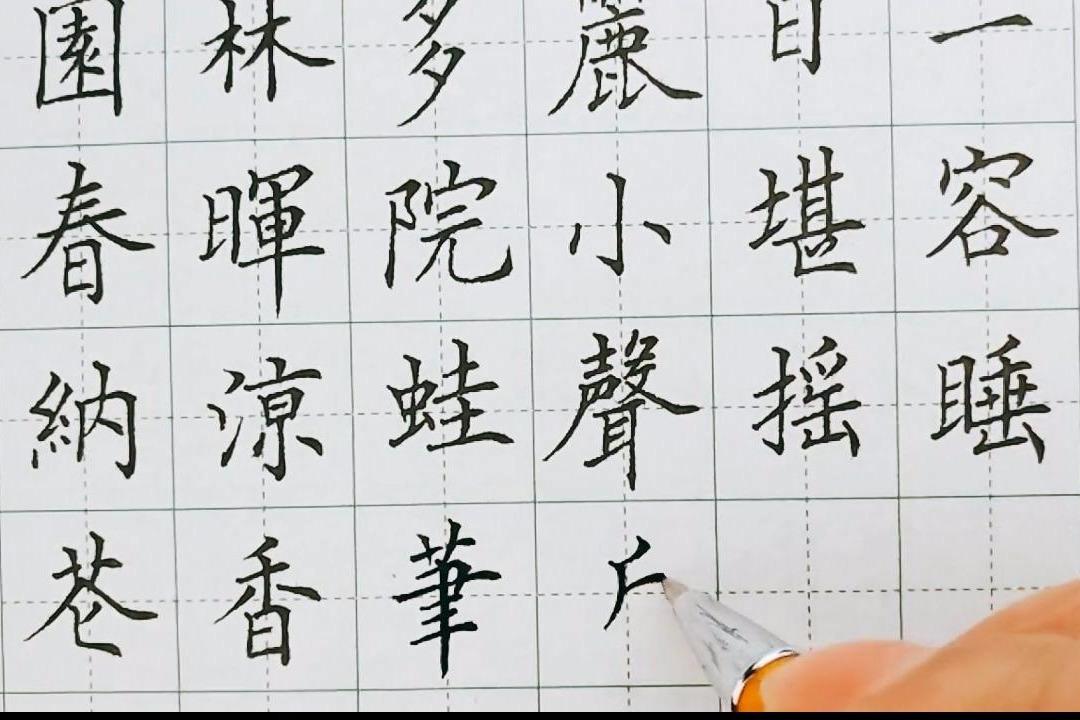 園林多麗日一
春暉院小堪容
納涼蛙聲摇睡
香筆